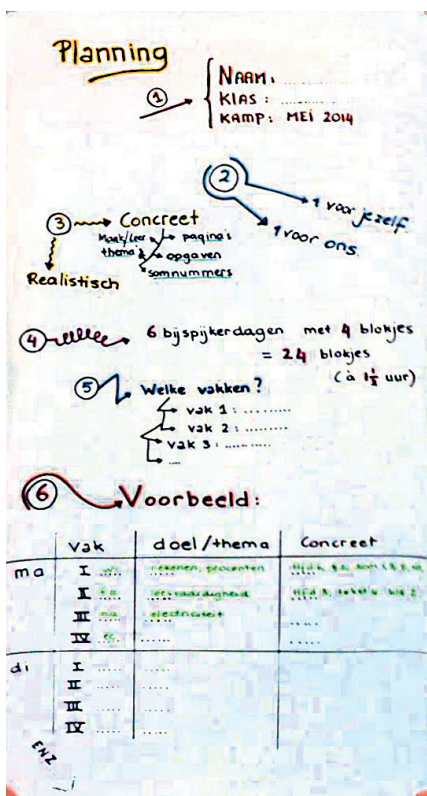 Planning
① NAAM: ..........
KLAS: ..........
KAMP: MEI 2014
②
1 voor jezelf.
1 voor ons.
③ Concreet
Maak/leer
thema's
pagina's
opgaven
somnummers
Realistisch
④ 6 bijspijkerdagen met 4 blokjes
= 24 blokjes
(à 1½ uur)
⑤ Welke vakken?
vak 1: .........
vak 2: .........
vak 3: .........
....
⑥ Voorbeeld:
vak doel/thema Concreet
ma I rekenen, procenten
II leesvaardigheid
III na electriciteit .....
IV ...... .....
di I ..... .....
II ..... .....
III ..... .....
IV ..... .....
ENZ